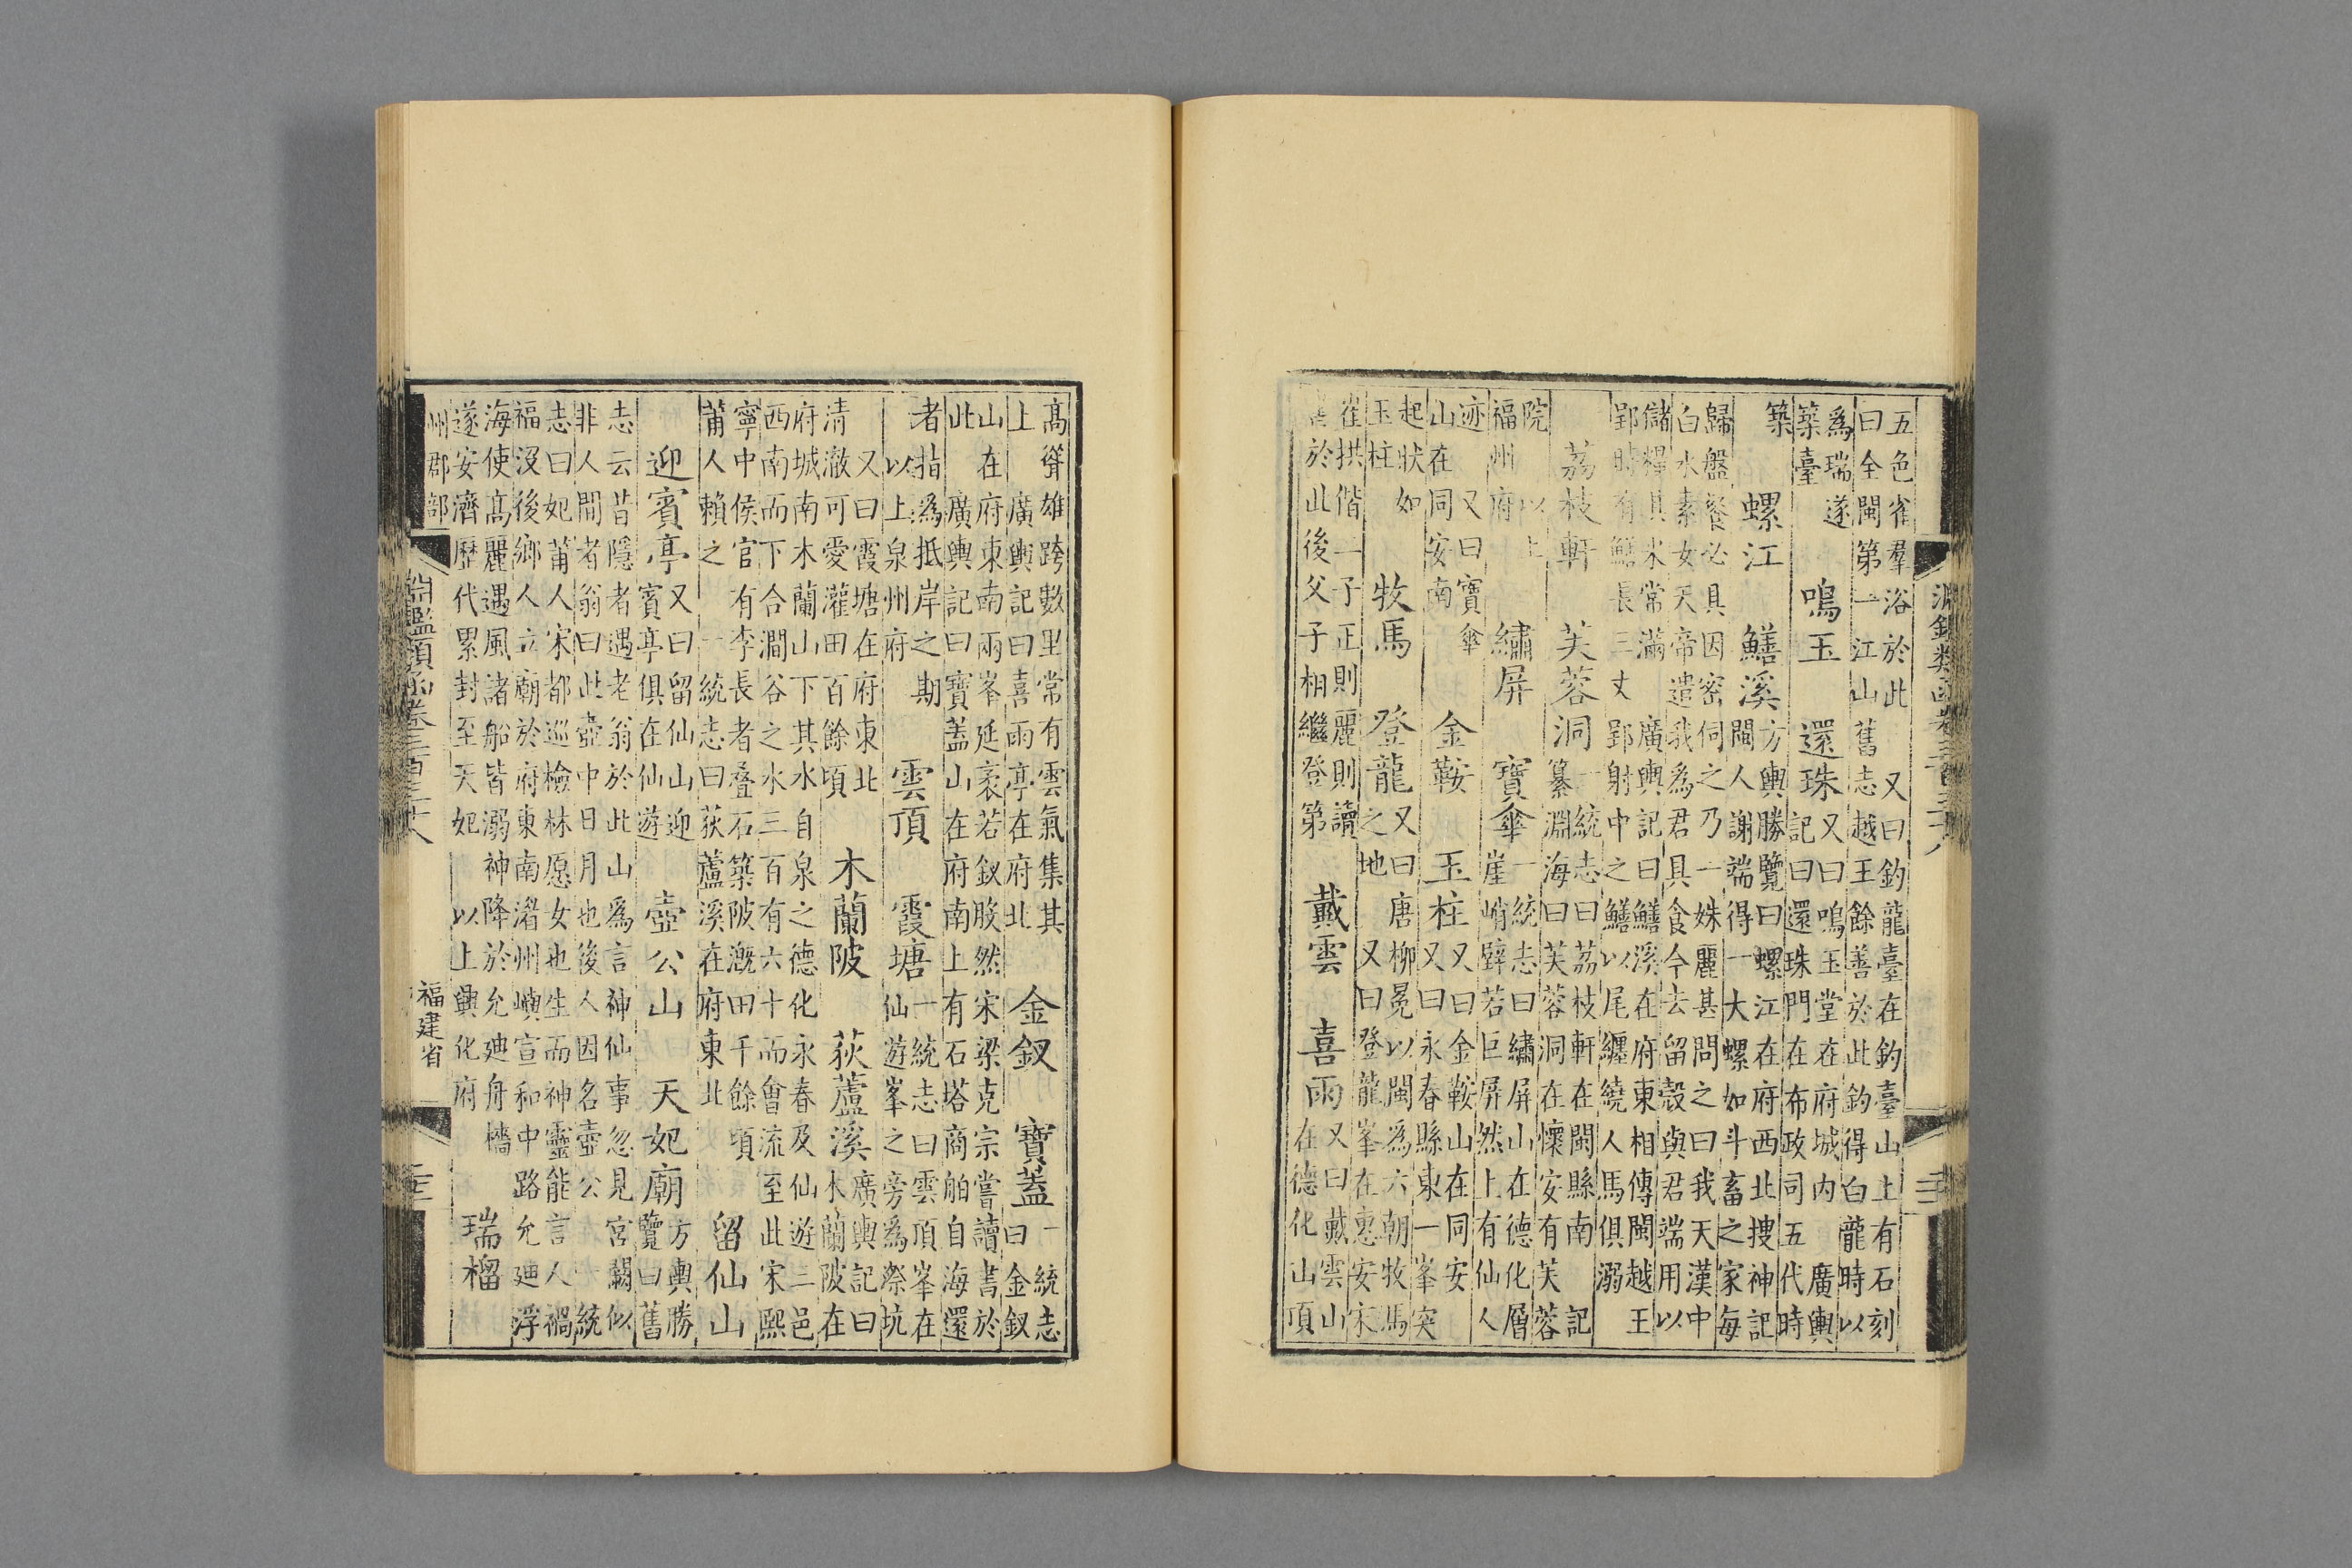 淵鑑類函卷三百三十八
五色雀羣浴於此 又曰釣龍臺在釣臺山上有石刻
曰全閩第一江山 舊志越王餘善於此釣得白龍時以
爲瑞遂
築臺 鳴玉 還珠 又曰鳴玉堂在府城內 廣輿
記曰還珠門在布政司五代時
築 螺江 鱔溪 方輿勝覽曰螺江在府西北搜神記
閩人謝端得一大螺如斗畜之家每
歸盤餐必具因密伺之乃一姝麗甚問之曰我天漢中
白水素女天帝遣我爲君具食今去留殼與君端用以
儲糧其米常滿 廣輿記曰鱔溪在府東相傳閩越王
郢時有鱔長三丈郢射中之鱔以尾纏繞人馬俱溺
荔枝軒 芙蓉洞 一統志曰荔枝軒在閩縣南 記
纂淵海曰芙蓉洞在懷安有芙蓉
院 以上
福州府 繡屏 寶傘 一統志曰繡屏山在德化層
崖峭壁若巨屏然上有仙人
迹 又曰寶傘
山在同安南 金鞍 玉柱 又曰金鞍山在同安
又曰永春縣東一峯突
起狀如
玉柱 牧馬 登龍 又曰唐柳冕以閩爲六朝牧馬
之地 又曰登龍峯在惠安宋
崔拱偕二子正則麗則讀
書於此後父子相繼登第 戴雲 喜雨 又曰戴雲山
在德化山頂
髙聳雄跨數里常有雲氣集其
上 廣輿記曰喜雨亭在府北 金釵 寶蓋 一統志
曰金釵
山在府東南兩峯延袤若釵股然宋梁克宗嘗讀書於
此 廣輿記曰寶蓋山在府南上有石塔商舶自海還
者指爲抵岸之期
以上泉州府 雲頂 霞塘 一統志曰雲頂峯在
仙遊峯之旁爲漈坑
又曰霞塘在府東北
清澈可愛灌田百餘頃 木蘭陂 荻蘆溪 廣輿記曰
木蘭陂在
府城南木蘭山下其水自泉之德化永春及仙遊三邑
西南而下合澗谷之水三百有六十而會流至此宋熙
寧中侯官有李長者叠石築陂溉田千餘頃
莆人賴之 一統志曰荻蘆溪在府東北 留仙山
迎賓亭 又曰留仙山迎
賓亭俱在仙遊 壺公山 天妃廟 方輿勝
覽曰舊
志云昔隱者遇老翁於此山爲言神仙事忽見宮闕似
非人間者翁曰此壺中日月也後人因名壺公 一統
志曰妃莆人宋都巡檢林愿女也生而神靈能言人禍
福沒後鄉人立廟於府東南湄州嶼宣和中路允迪浮
海使髙麗遇風諸船皆溺神降於允迪舟檣
遂安濟歷代累封至天妃 以上興化府 瑞榴
州郡部
淵鑑類函卷三百三十八
福建省